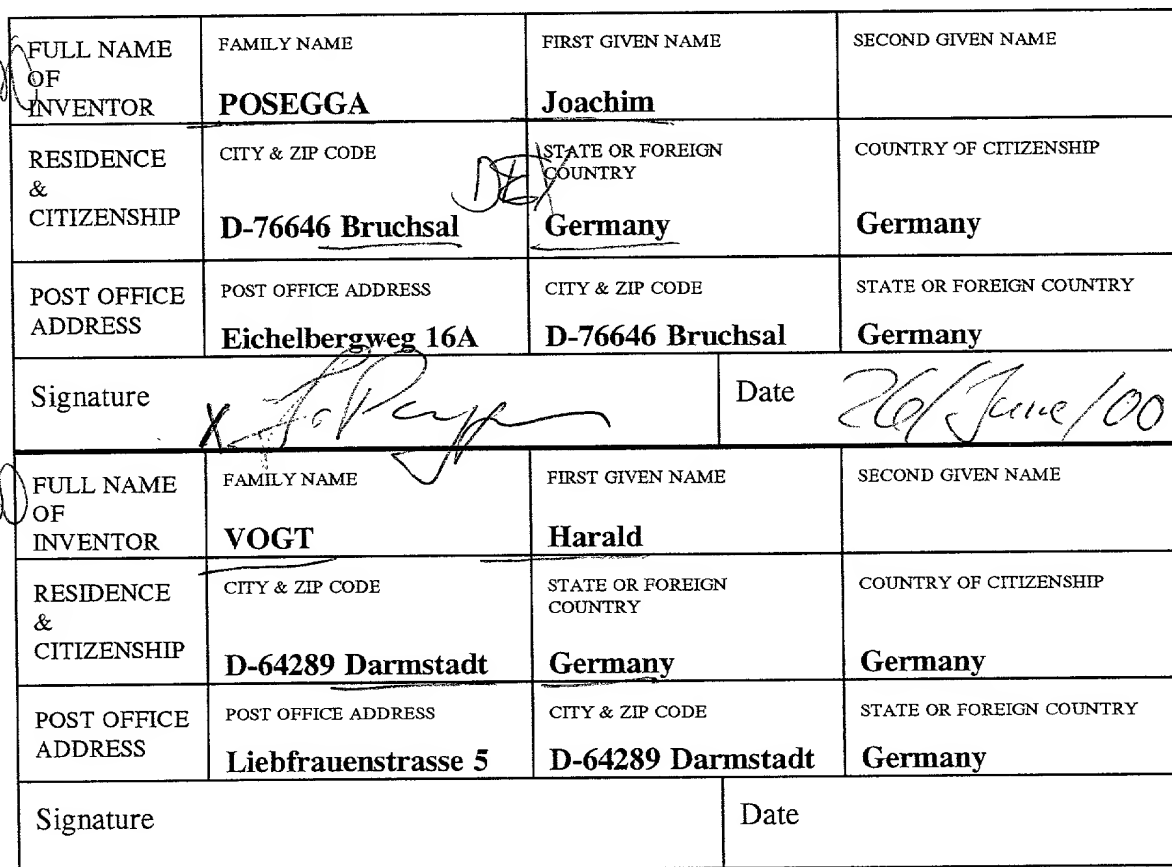 FULL NAME OF INVENTOR
FAMILY NAME
POSEGGA
FIRST GIVEN NAME
Joachim
SECOND GIVEN NAME
RESIDENCE & CITIZENSHIP
CITY & ZIP CODE
D-76646 Bruchsal
DEX
STATE OR FOREIGN COUNTRY
Germany
COUNTRY OF CITIZENSHIP
Germany
POST OFFICE ADDRESS
POST OFFICE ADDRESS
Eichelbergweg 16A
CITY & ZIP CODE
D-76646 Bruchsal
STATE OR FOREIGN COUNTRY
Germany
Signature
X
Date
26/June/00
FULL NAME OF INVENTOR
FAMILY NAME
VOGT
FIRST GIVEN NAME
Harald
SECOND GIVEN NAME
RESIDENCE & CITIZENSHIP
CITY & ZIP CODE
D-64289 Darmstadt
STATE OR FOREIGN COUNTRY
Germany
COUNTRY OF CITIZENSHIP
Germany
POST OFFICE ADDRESS
POST OFFICE ADDRESS
Liebfrauenstrasse 5
CITY & ZIP CODE
D-64289 Darmstadt
STATE OR FOREIGN COUNTRY
Germany
Signature
Date